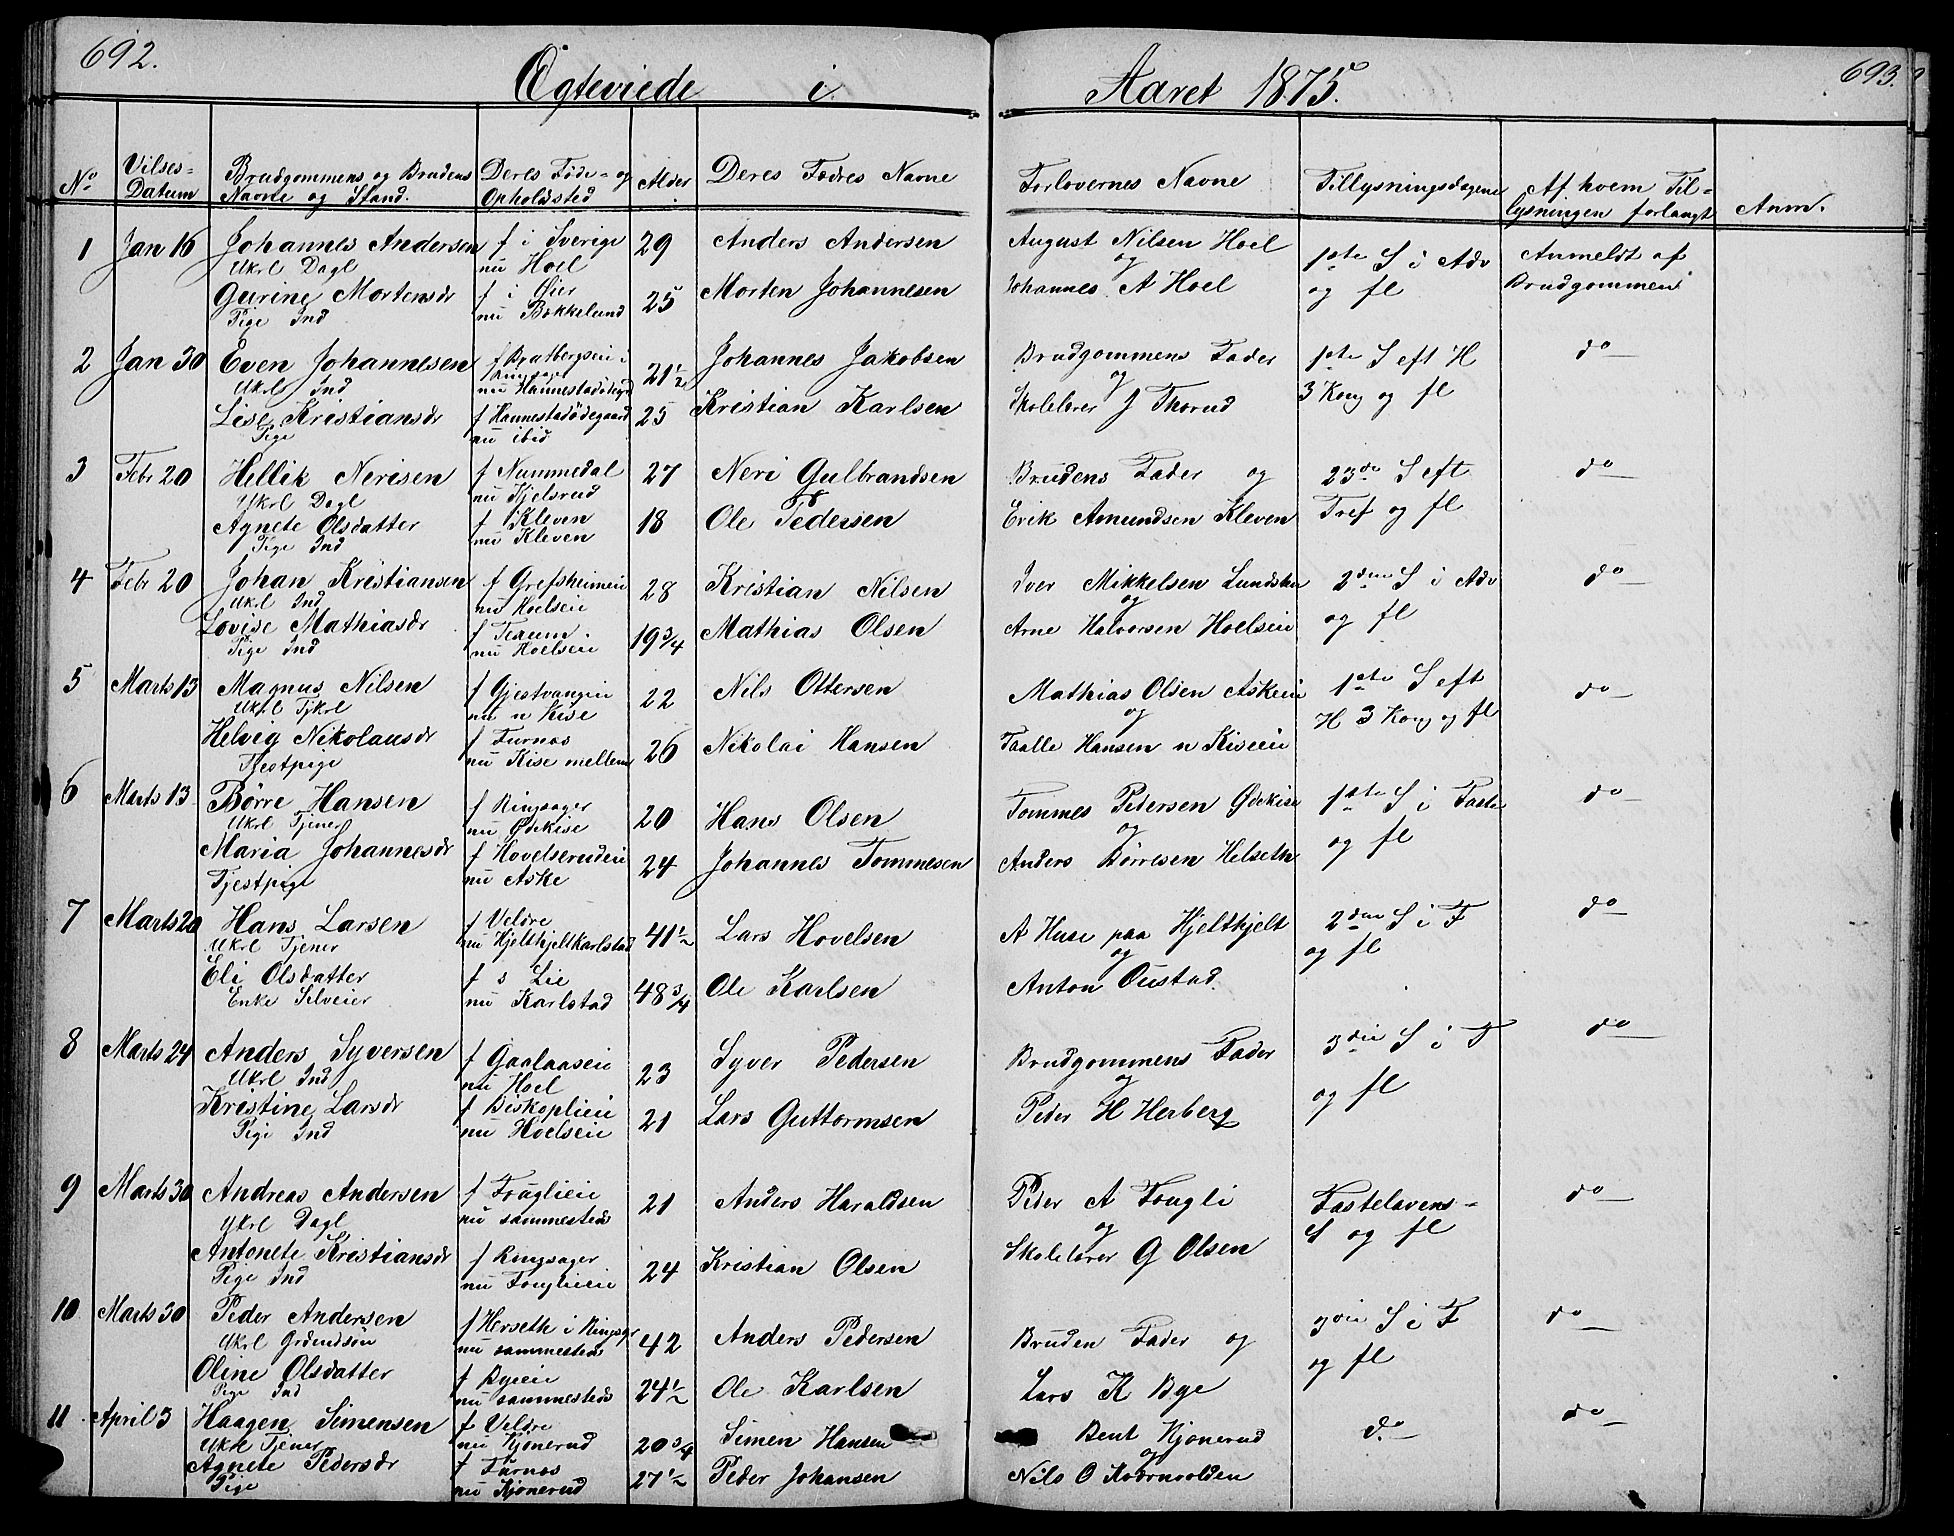 692.
Ægteviede i
Aaret 1875.
693.
No
Vilses-
Datum
Brudgommens og Brudens
Navne og Stand.
Deres Føde- og
Opholdsted
Alder
Deres Fædres Navne
Forlovernes Navne
Tillysningsdagene
Af hvem Til-
lysningen forlangt
Anm.
1 Jan 16 Johannes Andersen f i Sverige 29 Anders Andersen August Nilsen Hoel 1ste S i Adv Anmeldt af
Ukrl Dagl nu Hoel og og fl Brudgommen
Gurine Mortensdr f i Øier 25 Morten Johannesen Johannes A Hoel
Pige Ind nu Bækkelund
2 Jan 30 Even Johannesen f Bratbergseie i 21½ Johannes Jakobsen Brudgommens Fader 1ste S eft H do
Ukrl Ind Ringsager og 3 Kong og fl
nu Hannestadødegrd
Lise Kristiansdr f Hannestadødegaard 25 Kristian Karlsen Skolelærer J Thorud
Pige nu ibid
3 Febr 20 Hellik Nerisen f Nummedal 27 Neri Gulbrandsen Brudens Fader og 23de S eft do
Ykrl Dagl nu Kjelsrud
Agnete Olsdatter f Kleven 18 Ole Pedersen Erik Amundsen Kleven Tref og fl
Pige Ind nu Kleven
4 Febr 20 Johan Kristiansen f Grefsheimeie 28 Kristian Nilsen Iver Mikkelsen 2den S i Adv do
Ukrl Ind nu Hoelseie og og fl
Lovise Mathiasdr f 19¾ Mathias Olsen Arne Halvorsen Hoelseie
Pige Ind nu Hoelseie
5 Marts 13 Magnus Nilsen f Gjestvangeie 22 Nils Ottersen Mathias Olsen Askeie 1ste S eft do
Ukrl Tjkrl nu n Kise og H 3 Kong og fl
Helvig Nikolausdr f Furnæs 26 Nikolai Hansen Taalle Hansen n Kiseeie
Tjestpige nu Kise mellem
6 Marts 13 Børre Hansen f Ringsager 20 Hans Olsen Tommes Pedersen Ødekise 1ste S i Faste do
Ukrl Tjener nu Ødekise og og fl
Maria Johannesdr f Hovelsrudeie 24 Johannes Tommesen Anders Børresen Helseth
Tjestpige nu Aske
7 Marts 20 Hans Larsen f Veldre 41½ Lars Hovelsen A Huse paa Hjelthjelt 2den S i F do
Ukrl Tjener nu Hjelthjeltkarlstad og og fl
Eli Olsdatter f s Lie 48¾ Ole Karlsen Anton Oustad.
Enke Selveier nu Karlstad
8 Marts 24 Anders Syversen f Gaalaaseie 23 Syver Pedersen Brudgommens Fader 3die S i F do
Ukrl Ind nu Hoel og og fl
Kristine Larsdr f Biskoplieie 21 Lars Guttormsen Peder H Herberg
Pige Ind nu Hoelseie
9 Marts 30 Andreas Andersen f Fouglieie 21 Anders Haraldsen Peder A Fougli Fastelavens- do
Ykrl Dagl nu sammesteds og S og fl
Antonete Kristiansdr f Ringsager 24 Kristian Olsen Skolelærer G Olsen
Pige Ind nu Fouglieie
10 Marts 30 Peder Andersen f Herseth i Ringsgr 42 Anders Pedersen Bruden Fader og 3die S i F do
Ukrl Grdmdsøn nu sammesteds og fl
Oline Olsdatter f Byeie 24½ Ole Karlsen Lars K Bye
Pige Ind nu sammesteds
11 April 3 Haagen Simensen f Veldre 20¾ Simen Hansen Bent Kjønerud do do
Ukrl Tjener nu Kjønerud og
Agnete Pedersdr f Furnæs 27½ Peder Johansen Nils O Kværnvolden
Pige nu Kjønerud